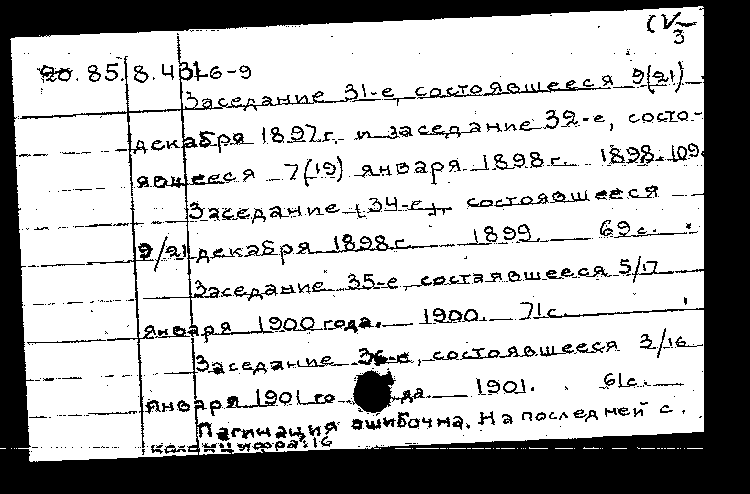 (V-
3
20. 85. 8. 431-6-9
Заседание 31-е, состоявшееся 9(21)
декабря 1897 г. и заседание 32-е, состо-
явшееся 7(19) января 1898 г. 1898. 109.
Заседание [34-е], состоявшееся
9/21 декабря 1898 г. 1899. 69 с.
Заседание 35-е, состаявшееся 5/17
января 1900 года. 1900. 71 с.
Заседание 36-е, состоявшееся 3/16
января 1901 го да. 1901. 61 с.
Пагинация ошибочна. На последней с.
колонцифра: 16